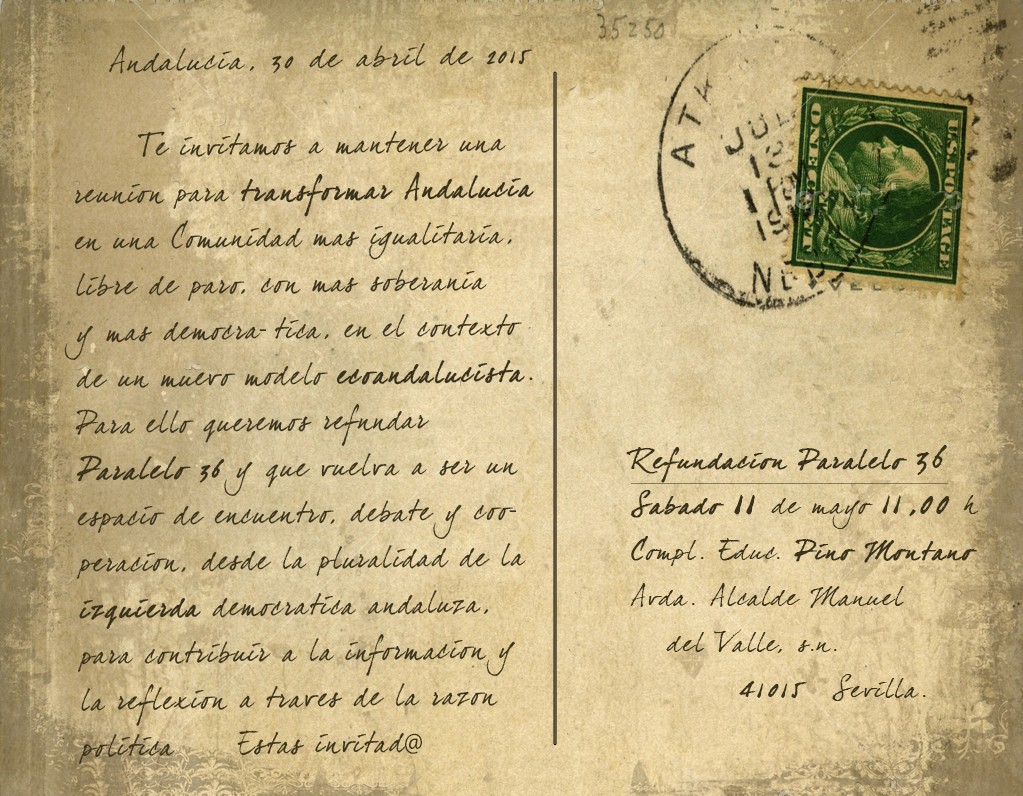 35250
Andalucia, 30 de abril de 2015
Te invitamos a mantener una
reunion para transformar Andalucia
en una Comunidad mas igualitaria,
libre de paro, con mas soberania
y mas democra-tica, en el contexto
de un muevo modelo ecoandalucista.
Para ello queremos refundar
Paralelo 36 y que vuelva a ser un
espacio de encuentro, debate y coo-
peracion, desde la pluralidad de la
izquierda democratica andaluza,
para contribuir a la informacion y
la reflexion a traves de la razon
politica Estas invitad@
ATH
JUL
13
1
19
NEB
U.S. POSTAGE
ONE CENT
Refundacion Paralelo 36
Sabado 11 de mayo 11,00 h
Compl. Educ. Pino Montano
Avda. Alcalde Manuel
del Valle, s.n.
41015 Sevilla.